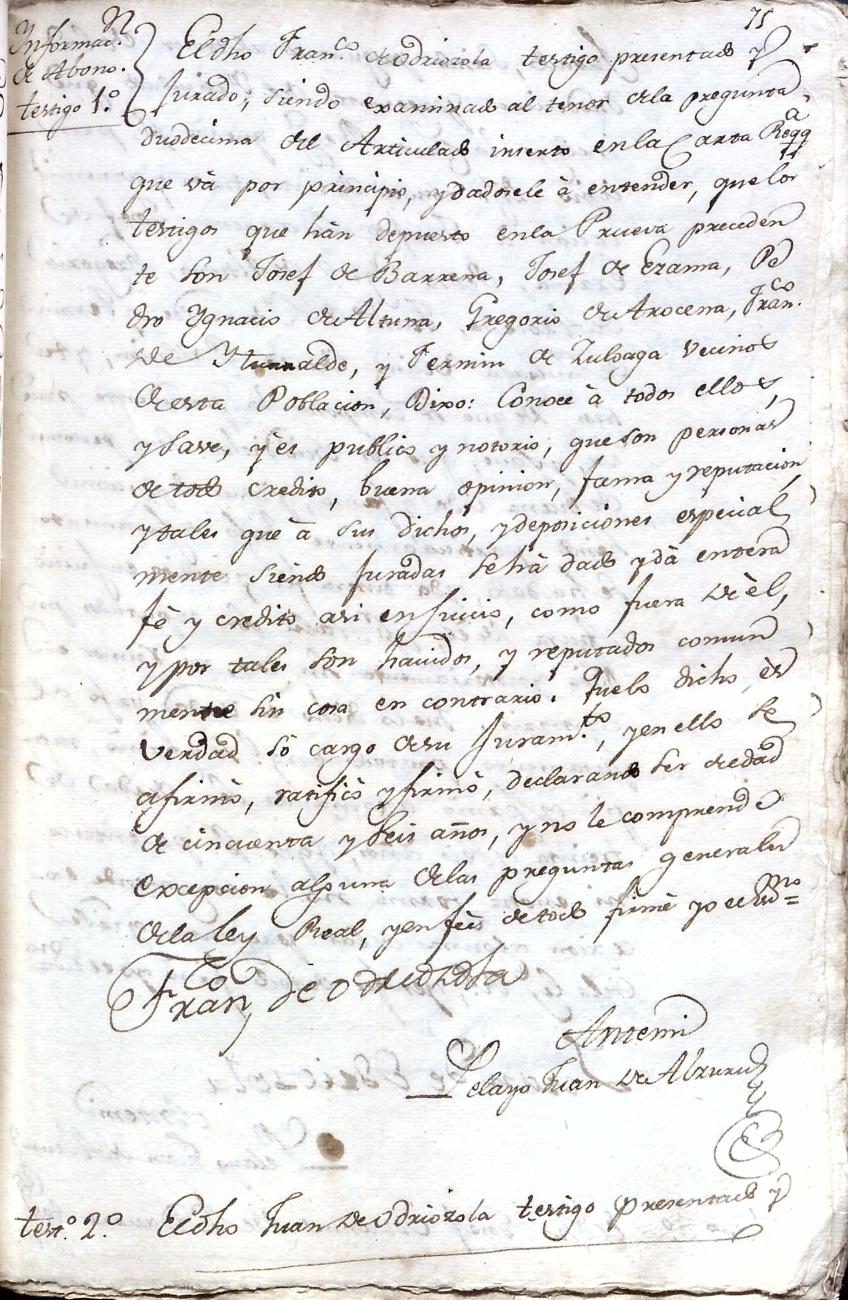 75
Informac.n
de Abono.
testigo 1.o
El dho Fran.co de Odriozola testigo presentado y
Jurado; siendo examinado al tenor de la pregunta
duodecima del Articulado inserto en la Carta Reqq.a
que và por principio, y dadosele à entender, que los
testigos que hàn depuesto en la Prueva preceden
te son Josef de Barrena, Josef de Erama, Pe
dro Ygnacio de Altuna, Gregorio de Arocena, Fran.co
de Yturralde, y Fermin de Zuloaga vecinos
de esta Poblacion, Dixo: Conoce à todos ellos,
y save, y es publico y notorio, que son personas
de todo credito, buena opinion, fama y reputacion,
y tales que à sus dichos, y deposiciones especial
mente siendo Juradas se hà dado y dà entera
fè y credito asi en Juicio, como fuera de èl,
y por tales son havidos, y reputados comun
mente sin cosa en contrario. Que lo dicho ès
verdad sò cargo de su Juram.to, y en ello se
afirmò, ratificò y firmò, declarando ser de edad
de cincuenta y seis años, y no le comprende
excepcion alguna de las preguntas generales
de la ley Real, y en feè de todo firmè yo el Es.no=
Fran.co de Odriozola
Antemi
Pelayo Juan de
test.o 2.o El dho Juan de Odriozola testigo presentado y